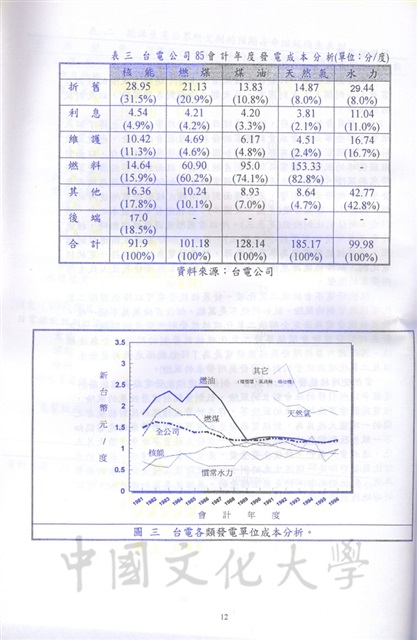 表三 台電公司85會計年度發電成本分析(單位:分/度)
核能 燃煤 煤油 天然氣 水力
折舊 28.95 21.13 13.83 14.87 29.44
(31.5%) (20.9%) (10.8%) (8.0%) (8.0%)
利息 4.54 4.21 4.20 3.81 11.04
(4.9%) (4.2%) (3.3%) (2.1%) (11.0%)
維護 10.42 4.69 6.17 4.51 16.74
(11.3%) (4.6%) (4.8%) (2.4%) (16.7%)
燃料 14.64 60.90 95.0 153.33 -
(15.9%) (60.2%) (74.1%) (82.8%)
其他 16.36 10.24 8.93 8.64 42.77
(17.8%) (10.1%) (7.0%) (4.7%) (42.8%)
後端 17.0 - - - -
(18.5%)
合計 91.9 101.18 128.14 185.17 99.98
(100%) (100%) (100%) (100%) (100%)
資料來源:台電公司
3.5
3
2.5
2
1.5
1
0.5
0
新台幣元/度
其它
燃油
天然氣
燃煤
全公司
核能
慣常水力
1981 1982 1983 1984 1985 1986 1987 1988 1989 1990 1991 1992 1993 1994 1995 1996
會計年度
圖三 台電各類發電單位成本分析。
中國文化大學
12